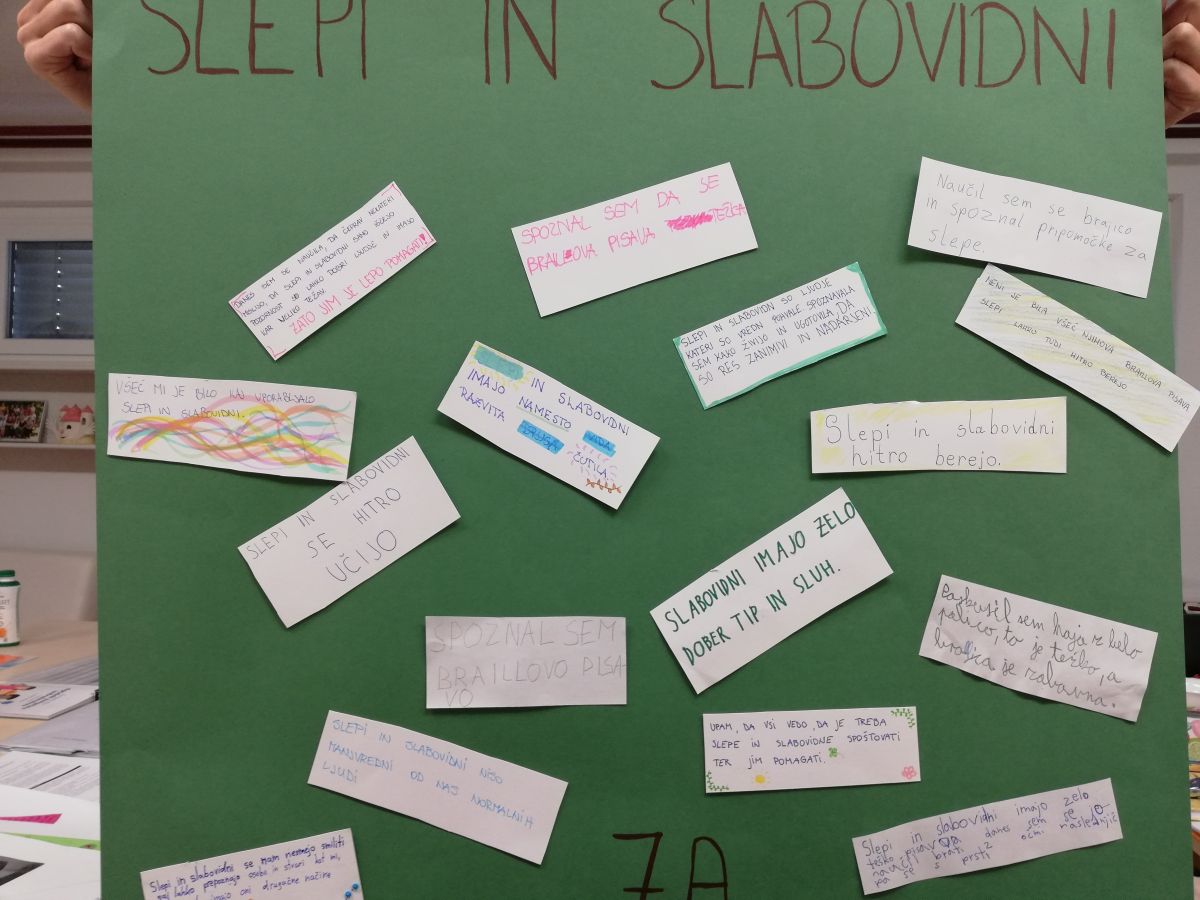 SLEPI IN SLABOVIDNI
DANES SEM SE NAUČILA, DA ČEPRAV NEKATERI
MISLIJO, DA SLEPI IN SLABOVIDNI SAMO IŠČEJO
POZORNOST SO LAHKO DOBRI LJUDJE IN IMAJO
KAR VELIKO TEŽAV.
ZATO JIM JE LEPO POMAGATI!
SPOZNAL SEM DA SE
BRAILEOVA PISAVA TEŽKA
Naučil sem se brajico
in spoznal pripomočke za
slepe.
SLEPI IN SLABOVIDN SO LJUDJE
KATERI SO VREDN POHVALE SPOZNAVALA
SEM KAKO ŽIVIJO IN UGOTOVILA, DA
SO RES ZANIMIVI IN NADARJENI
MENI JE BILA VŠEČ NJIHOVA BRAILLOVA PISAVA
SLEPI LAHKO TUDI HITRO BEREJO
VŠEČ MI JE BILO KAJ UPORABLJALO
SLEPI IN SLABOVIDNI.
IN SLABOVIDNI
IMAJO NAMESTO VIDA
RAZVITA ČUTILA
Slepi in slabovidni
hitro berejo.
SLEPI IN SLABOVIDNI
SE HITRO
UČIJO
SLABOVIDNI IMAJO ZELO
DOBER TIP IN SLUH.
SPOZNAL SEM
BRAILLOVO PISA-
VO
sem hoja z belo
palico, to je težko, a
brajica je zabavna.
SLEPI IN SLABOVIDNI NISO
MANJVREDNI OD NAJ NORMALNIH
LJUDI
UPAM, DA VSI VEDO, DA JE TREBA
SLEPE IN SLABOVIDNE SPOŠTOVATI
TER JIM POMAGATI.
Slepi in slabovidni imajo zelo
težko pisavo danes sem se jo
naučil brati z očmi naslednjič
pa se s prsti
Slepi in slabovidni se nam nesmejo smiliti
saj lahko prepoznajo osebe in stvari kot mi,
imajo oni drugačne načine
ZA